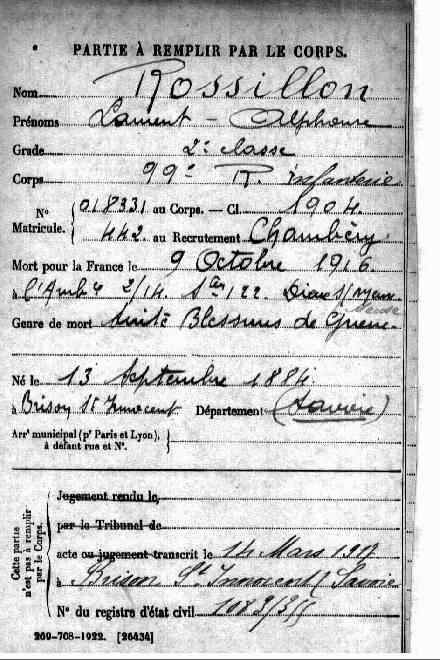 PARTIE À REMPLIR PAR LE CORPS.
Nom Rossillon
Prénoms Laurent - Alphonse
Grade 2e classe
Corps 99e R. infanterie
N° Matricule. { 018331 au Corps. — Cl. 1904.
442. au Recrutement Chambéry
Mort pour la France le 9 Octobre 1916
à l'Amb 2/14. 122. s/ Meuse
Genre de mort suite Blessures de Guerre.
Né le 13 Septembre 1884
à Brison St Innocent Département (Savoie)
Arrt municipal (pr Paris et Lyon), à défaut rue et N°.
Cette partie n'est pas à remplir par le Corps.
Jugement rendu le
par le Tribunal de
acte ou jugement transcrit le 14 Mars 1917
à Brison St Innocent (Savoie
N° du registre d'état civil
269-708-1922. [26434]